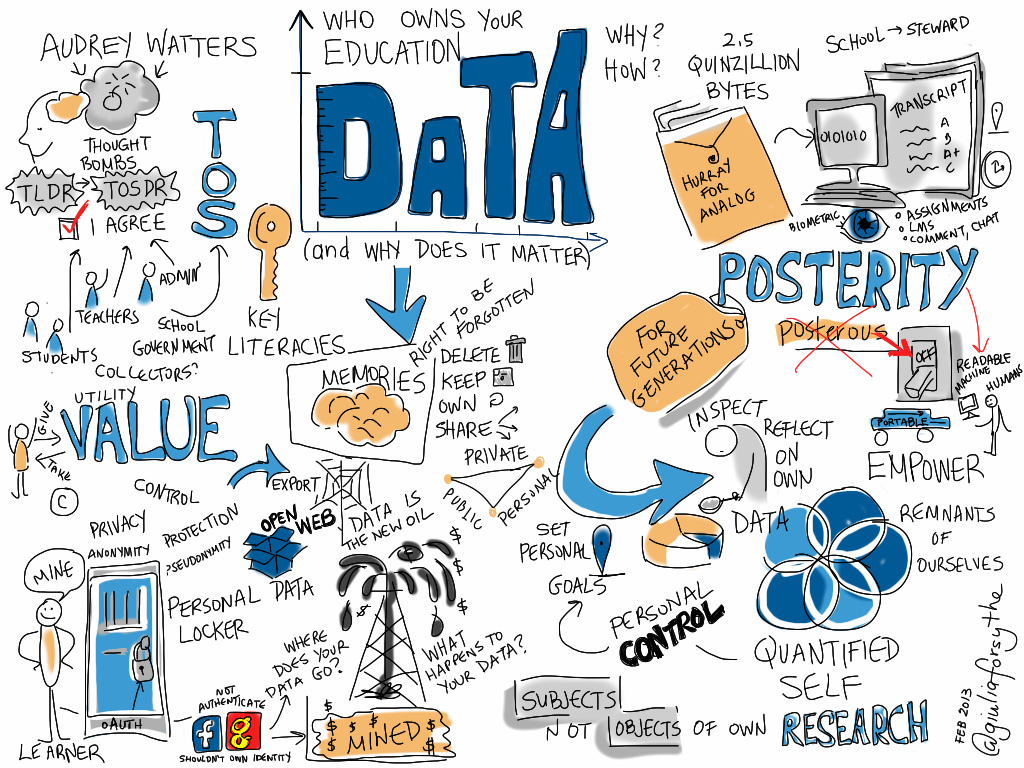 AUDREY WATTERS
THOUGHT
BOMBS
TLDR
TOSDR
I AGREE
TOS
ADMIN
TEACHERS
STUDENTS
SCHOOL
GOVERNMENT
COLLECTORS?
KEY
LITERACIES
WHO OWNS YOUR
EDUCATION
DATA
(and WHY DOES IT MATTER)
WHY?
HOW?
2.5
QUINZILLION
BYTES
HURRAY
FOR
ANALOG
SCHOOL → STEWARD
010101
TRANSCRIPT
A
B
A+
C
BIOMETRIC
ASSIGNMENTS
LMS
COMMENT, CHAT
POSTERITY
Posterous
OFF
READABLE
MACHINE
HUMANS
PORTABLE
EMPOWER
FOR
FUTURE
GENERATIONS
MEMORIES
RIGHT TO BE
FORGOTTEN
DELETE
KEEP
OWN
SHARE
PRIVATE
PUBLIC
PERSONAL
UTILITY
VALUE
GIVE
TAKE
C
CONTROL
PRIVACY
ANONYMITY
PROTECTION
PSEUDONYMITY
EXPORT
OPEN WEB
DATA IS
THE NEW OIL
MINE
PERSONAL DATA
LOCKER
OAUTH
LEARNER
NOT
AUTHENTICATE
f g
SHOULDN'T OWN IDENTITY
WHERE
DOES YOUR
DATA GO?
WHAT
HAPPENS TO
YOUR DATA?
$ $ $ $ $
MINED
INSPECT
REFLECT
ON
OWN
DATA
SET
PERSONAL
GOALS
PERSONAL
CONTROL
REMNANTS
OF
OURSELVES
QUANTIFIED
SELF
SUBJECTS
NOT OBJECTS OF OWN RESEARCH
FEB 2013
@giuliaforsythe